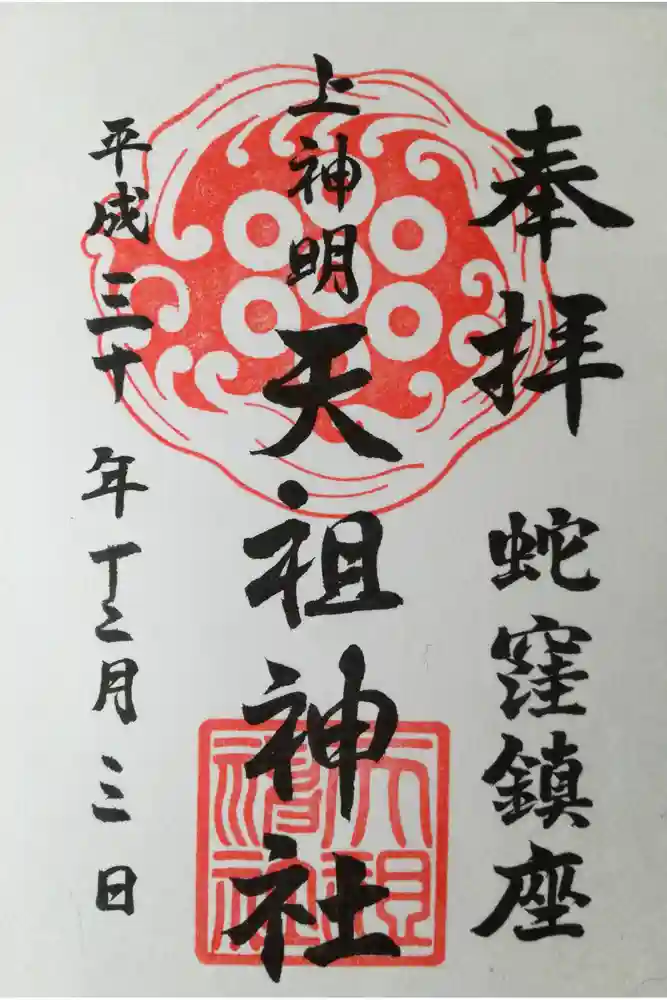 奉拝
蛇窪鎮座
上神明
天祖神社
天祖神社
平成三十年十二月三日